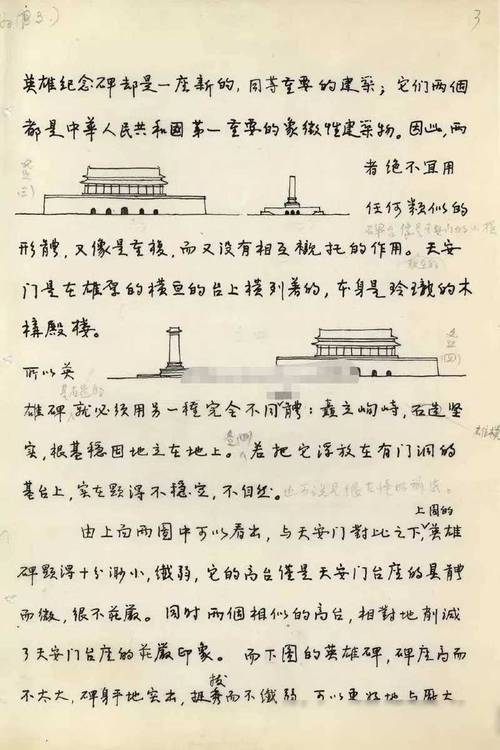 3
英雄紀念碑却是一座新的，同等重要的建築；它们两個
都是中華人民共和國第一重要的象徵性建築物。因此，兩
者绝不宜用
任何類似的
形體，又像是重複，而又没有相互襯托的作用。天安
門是在雄厚的横亘的台上横列着的，本身是玲瓏的木
構殿楼。
所以英
雄碑就必須用另一種完全不同的體：矗立峋峙，石造堅
实，根基穩固地立在地上。若把它浮放在有门洞的
基台上，实在顕得不稳定，不自然。
上圖的
由上向两圖中可以看出，与天安门對比之下，英雄
碑顕得十分渺小，纖弱，它的高台僅是天安门台座的具體
而微，很不莊嚴。同时两個相似的高台，相對地削減
了天安门台座的莊嚴印象。而下圖的英雄碑，碑座高而
不太大，碑身平地突出，挺
拔
而不纖弱 可以更好地与